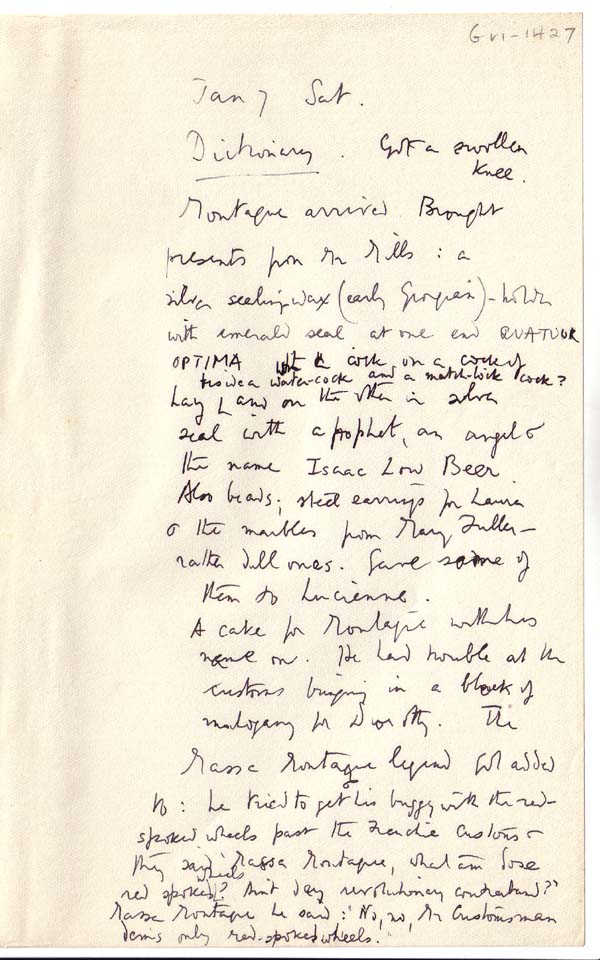 GVI-1427
Jan 7 Sat.
Dictionary. Got a swollen
knee.
Montague arrived. Brought
presents from Mr Mills: a
silver sealing-wax (early Georgian)-holder
with emerald seal at one end QUATUOR
OPTIMA cock on a cock of
inside a water-cock and a match-lock cock?
hay & on the other in silver
seal with a prophet, an angel &
the name Isaac Low Beer.
Also beads; steel earrings for Laura
& the marbles from Mary Fuller –
rather dull ones. Gave some of
them to Lucienne.
A cake for Montague with his
name on. He had trouble at the
customs bringing in a block of
mahogany for Dorothy. The
Massa Montague legend got added
to: he tried to get his buggy with the red-
spoked wheels past the Frenchie Customs &
they said 'Massa Montague, what am dose
wheels
red spokes? Aint dey revolutionary contraband?'
Massa Montague he said: 'No, no, Mr Customsman
dems only red-spoked wheels.'